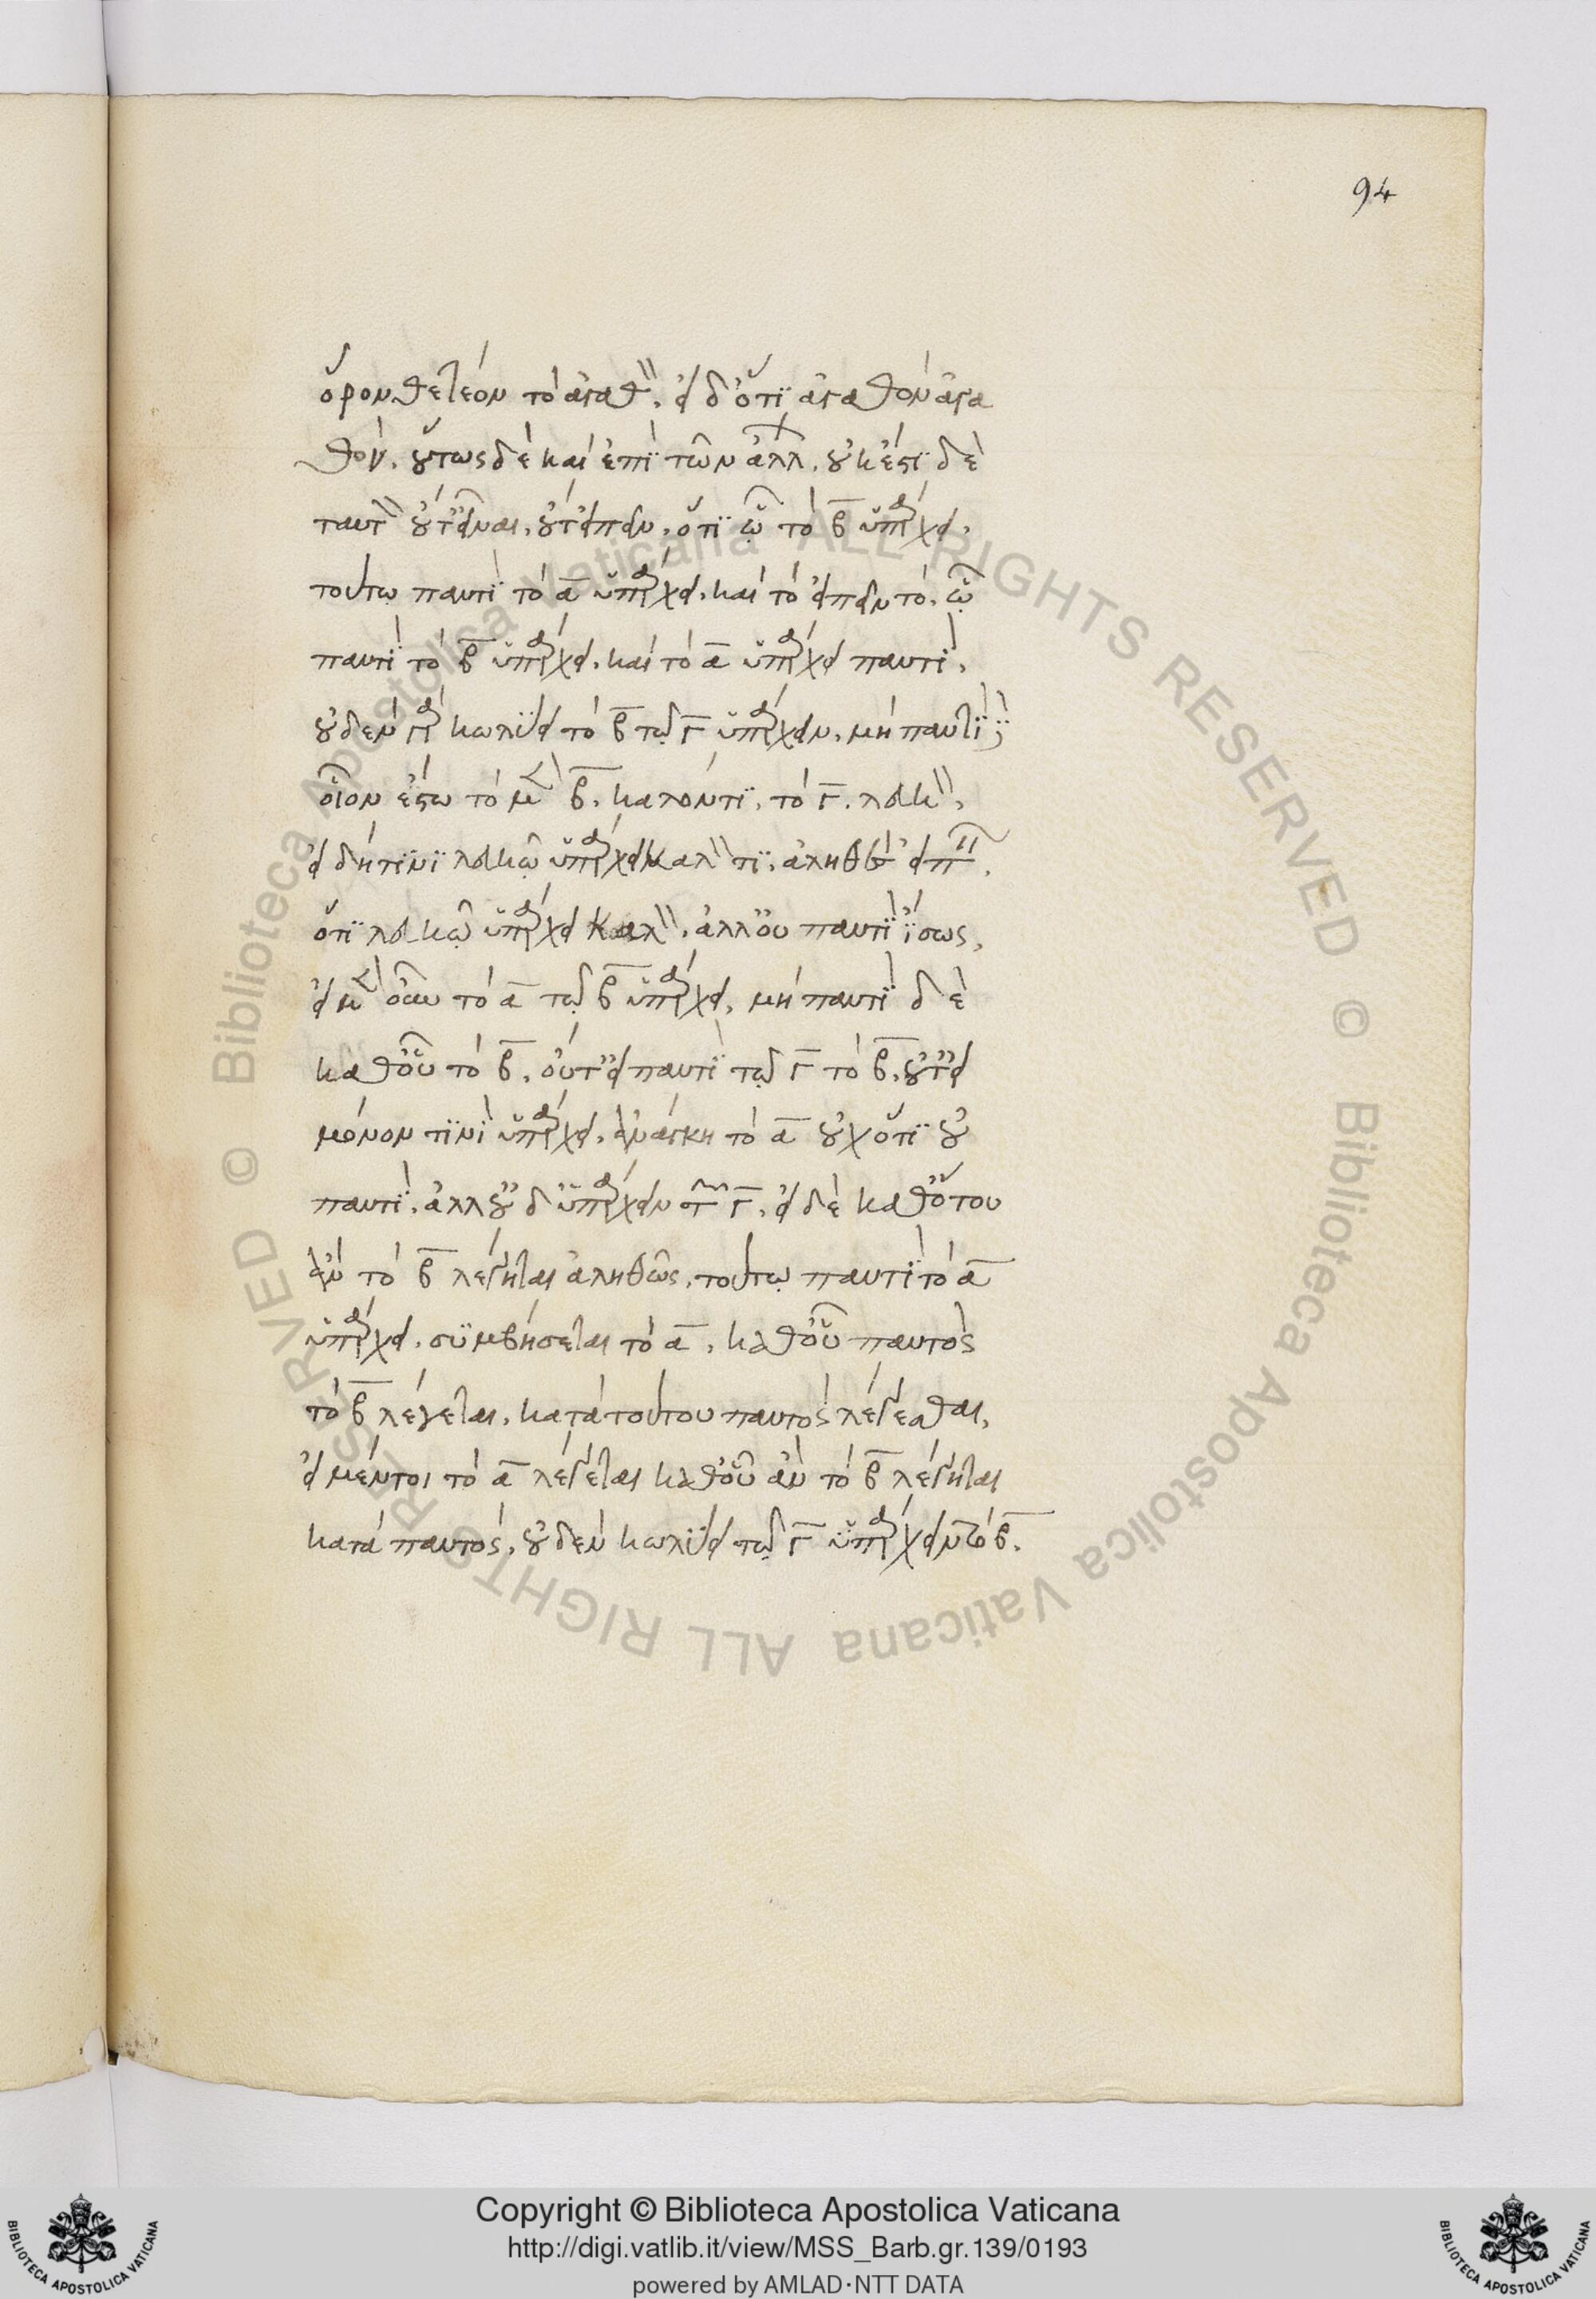 94
ὅρον θετέον τὸ ἀγαθ`. εἰ δ' ὅτι ἀγαθὸν ἀγα
θόν. οὕτως δὲ καὶ ἐπὶ τῶν ἄλλ. οὐκ ἔστι δὲ
ταυτ` οὔτ' εἶναι, οὔτ' εἰπεῖν, ὅτι ᾧ τὸ β ὑπάρχει,
τούτω παντὶ τὸ α ὑπάρχει. καὶ τὸ εἰπεῖν τὸ, ᾧ
παντὶ τὸ β ὑπάρχει, καὶ τὸ α ὑπάρχει παντί,
οὐδὲν γὰρ κωλύει τὸ β τῷ γ ὑπάρχειν, μὴ παντὶ δέ
οἷον ἔστω τὸ μὲν β. καλόν τι, τὸ γ. λευκ`,
εἰ δή τινι λευκῷ ὑπάρχει καλ` τι, ἀληθὲς εἰπεῖν,
ὅτι λευκῷ ὑπάρχει καλ`, ἀλλ' οὐ παντὶ ἴσως,
εἰ μὲν οὖν τὸ α τῷ β ὑπάρχει, μὴ παντὶ δὲ
καθ' οὗ τὸ β, οὔτ' εἰ παντὶ τῷ γ τὸ β, οὔτ' εἰ
μόνον τινὶ ὑπάρχει, ἀνάγκη τὸ α οὐχ ὅτι οὐ
παντὶ, ἀλλ' οὐδ' ὑπάρχειν τῷ γ, εἰ δὲ καθ' ὅτου
ἂν τὸ β λέγηται ἀληθῶς, τούτω παντὶ τὸ α
ὑπάρχει. συμβήσεται τὸ α, καθ' οὗ παντὸς
τὸ β λέγεται, κατὰ τούτου παντὸς λέγεσθαι,
εἰ μέντοι τὸ α λέγεται καθ' οὗ ἂν τὸ β λέγηται
κατὰ παντός, οὐδὲν κωλύει τῷ γ ὑπάρχειν τὸ β.
© Biblioteca Apostolica Vaticana ALL RIGHTS RESERVED © Biblioteca Apostolica Vaticana ALL RIGHTS RESERVED
Copyright © Biblioteca Apostolica Vaticana
http://digi.vatlib.it/view/MSS_Barb.gr.139/0193
powered by AMLAD·NTT DATA
BIBLIOTECA APOSTOLICA VATICANA
BIBLIOTECA APOSTOLICA VATICANA